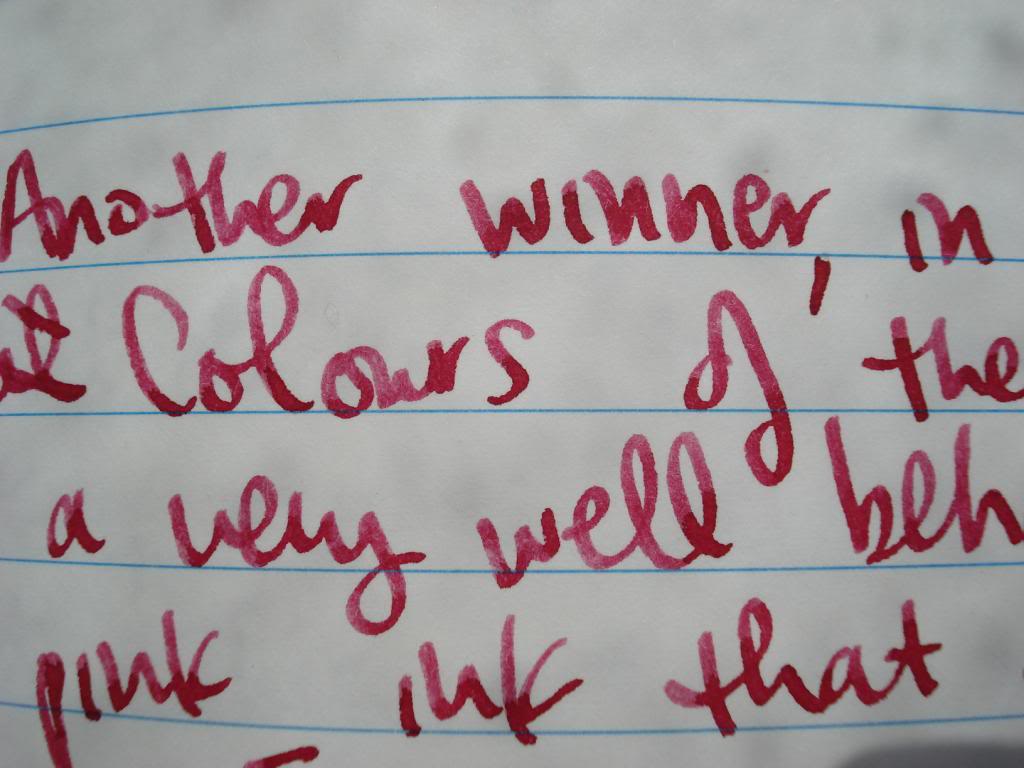 Another winner, in
Colours of the
a very well beh
pink ink that